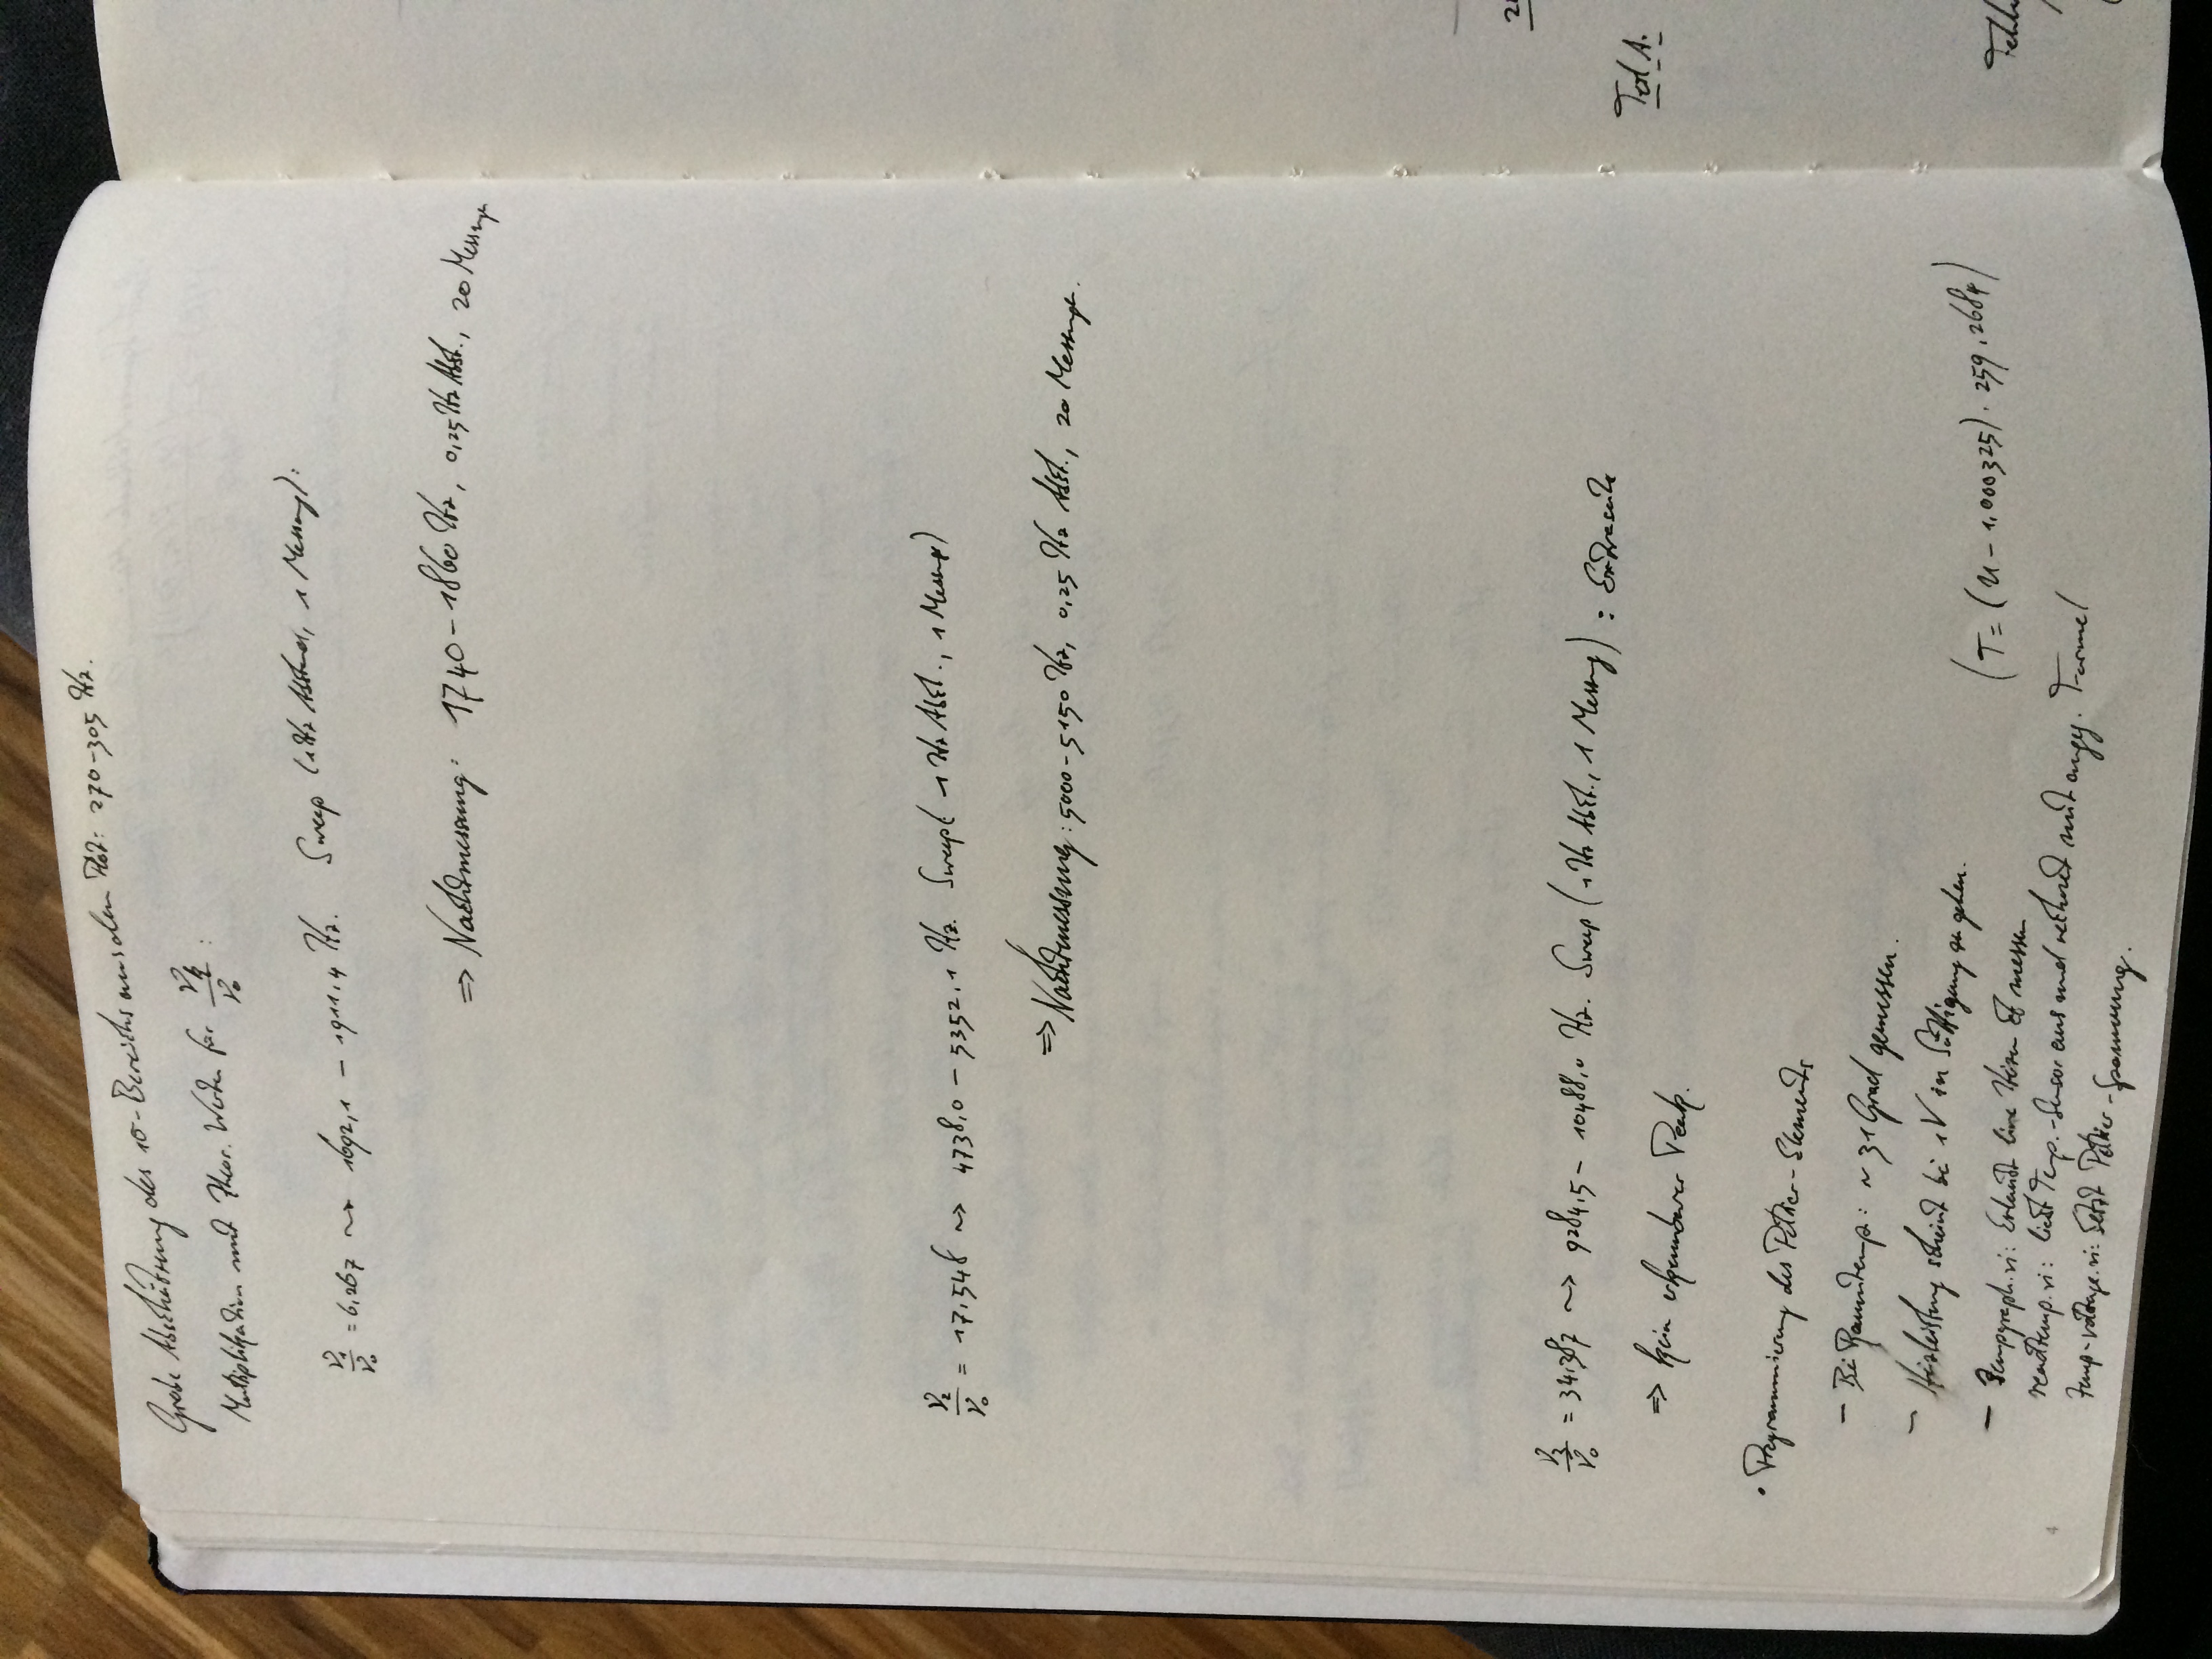 Grobe Abschätzung des 1σ-Bereichs aus dem Plot: 270-305 Hz.
Multiplikation mit theor. Werten für ν_k/ν_0 :
ν_1/ν_0 = 6,267 ~> 1692,1 - 1911,4 Hz. Sweep (1Hz Abstand, 1 Messung):
=> Nachtmessung: 1740-1860 Hz, 0,25 Hz Abst., 20 Messungen
ν_2/ν_0 = 17,548 ~> 4738,0 - 5352,1 Hz. Sweep (1 Hz Abst., 1 Messung)
=> Nachtmessung: 5000-5150 Hz, 0,25 Hz Abst., 20 Messungen.
ν_3/ν_0 = 34,387 ~> 9284,5 - 10488,0 Hz. Sweep (1Hz Abst., 1 Messung) : Extraseite
=> Kein erkennbarer Peak.
• Programmierung des Peltier-Elements
- Bei Raumtemp.: ~ 31 Grad gemessen.
- Heizleistung scheint bei 1V in Sättigung zu gehen.
- Tempgraph.vi: Erlaubt live Hören & messen
(T = (U - 1,00325) · 259,2684)
readtemp.vi: liest Temp.-Sensor aus und rechnet mit angeg. Formel
temp-voltage.vi: Setzt Peltier-Spannung.
4
Teil A.